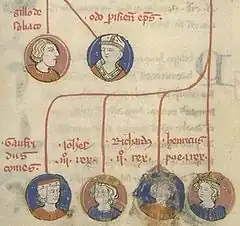 gillo de
soliaco
odo parisien eps
Gaufri
dus
comes
Johes
iij rex
Richardus
ij rex
henricus
rex